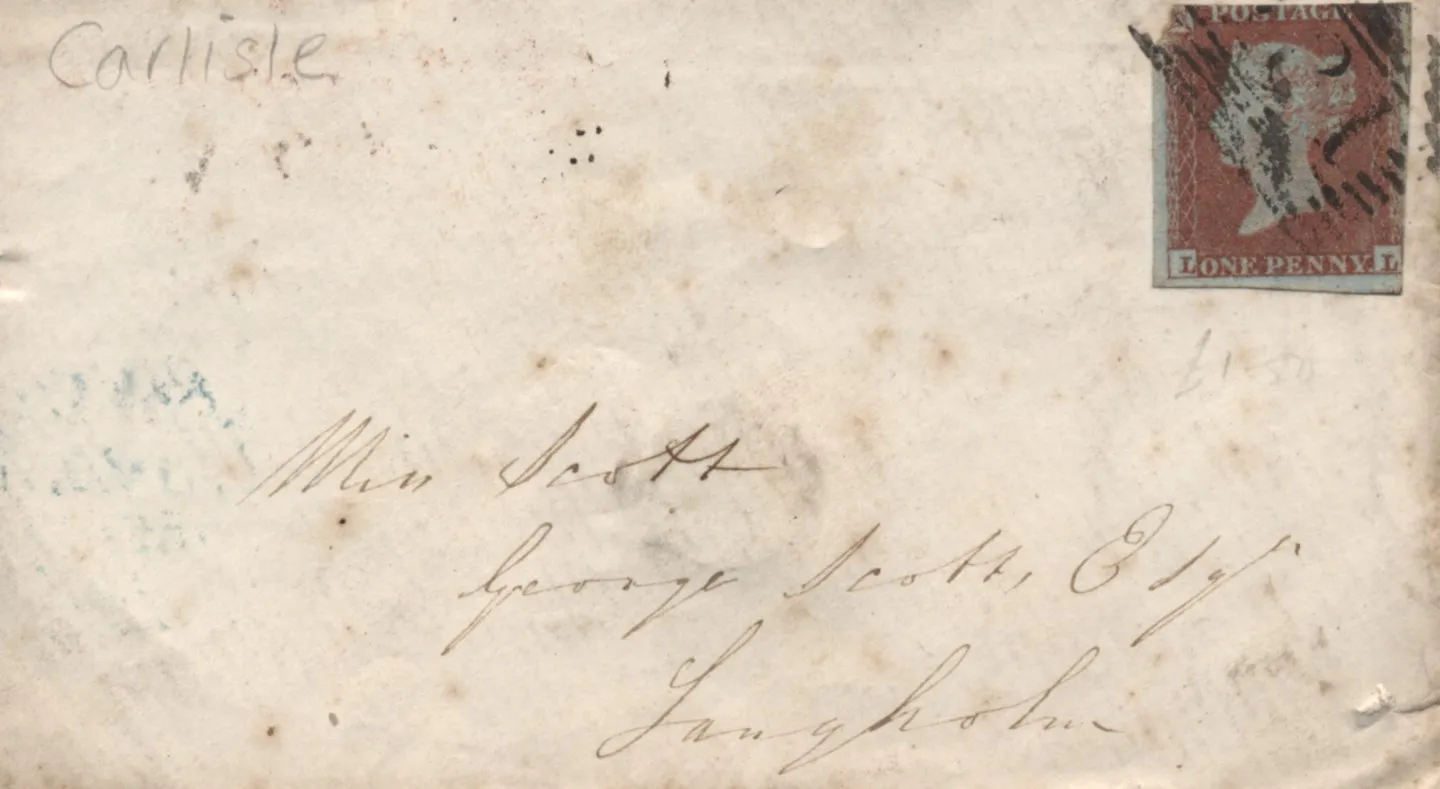 Carlisle
POSTAGE
L ONE PENNY. L
£1-50
Miss Scott
George Scott, Esqr
Langholm